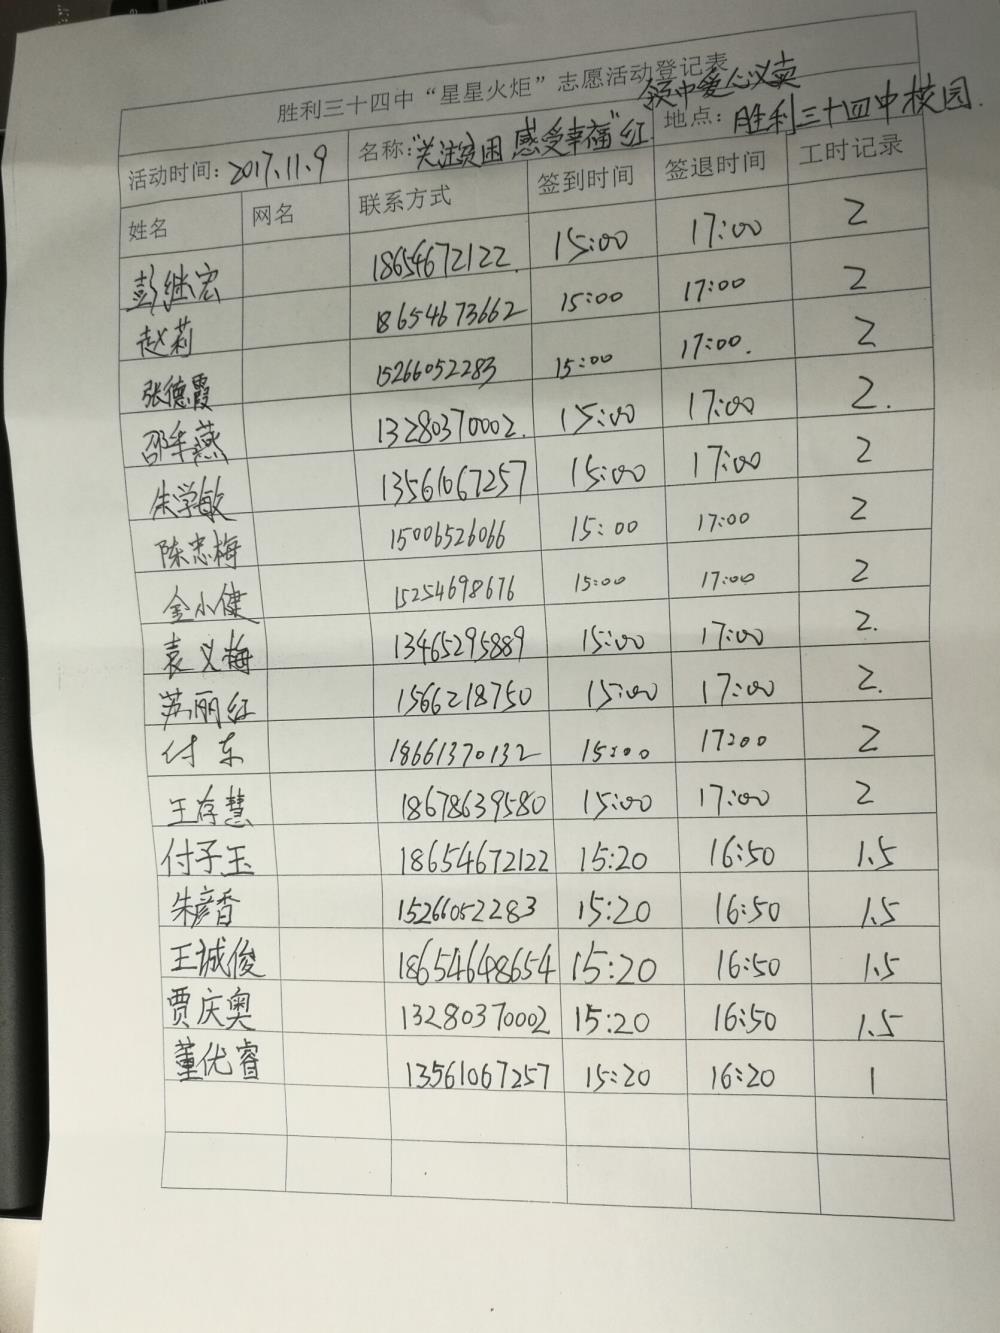 胜利三十四中“星星火炬”志愿活动登记表
活动时间：2017.11.9 名称：“关注贫困 感受幸福”红领巾爱心义卖 地点：胜利三十四中校园
姓名 网名 联系方式 签到时间 签退时间 工时记录
彭继宏 18654672122 15:00 17:00 2
赵莉 18654673662 15:00 17:00 2
张德霞 15266052283 15:00 17:00 2
邵年燕 13280370002 15:00 17:00 2
朱学敏 13561067257 15:00 17:00 2
陈忠梅 15006526066 15:00 17:00 2
金小健 15254698676 15:00 17:00 2
袁义梅 13465295889 15:00 17:00 2
丽红 1566218750 15:00 17:00 2
付东 18661370132 15:00 17:00 2
王存慧 18678639580 15:00 17:00 2
付子玉 18654672122 15:20 16:50 1.5
朱彦香 15266052283 15:20 16:50 1.5
王诚俊 18654648654 15:20 16:50 1.5
贾庆奥 13280370002 15:20 16:50 1.5
董优睿 13561067257 15:20 16:20 1